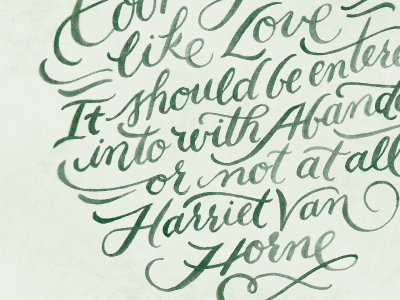 like Love
It should be entere
into with Aband
or not at all
Harriet Van
Horne